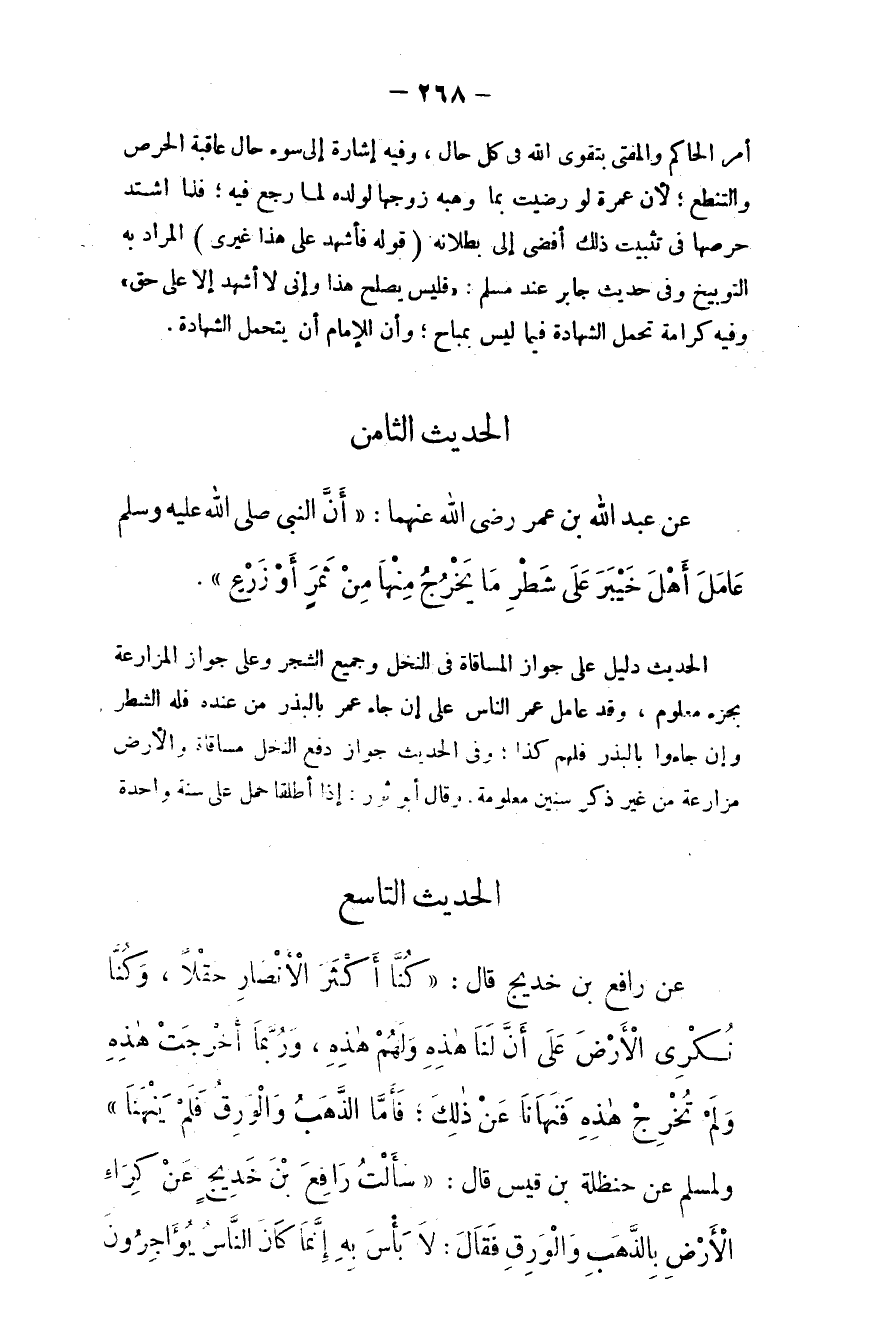 - ٢٦٨ -
أمر الحاكم والمفتى بتقوى الله فى كل حال ، وفيه إشارة إلى سوء حال عاقبة الحرص
والتنطع ؛ لأن عمرة لو رضيت بما وهبه زوجها لولده لما رجع فيه ؛ فلما اشتد
حرصها فى تثبيت ذلك أفضى إلى بطلانه ( قوله فأشهد على هذا غيرى ) المراد به
التوبيخ وفى حديث جابر عند مسلم : «فليس يصلح هذا وإنى لا أشهد إلا على حق»
وفيه كراهة تحمل الشهادة فيما ليس بمباح ؛ وأن للإمام أن يتحمل الشهادة .
الحديث الثامن
عن عبد الله بن عمر رضى الله عنهما : « أَنَّ النبى صلى الله عليه وسلم
عَامَلَ أَهْلَ خَيْبَرَ عَلَى شَطْرِ مَا يَخْرُجُ مِنْهَا مِنْ ثَمَرٍ أَوْ زَرْعٍ » .
الحديث دليل على جواز المساقاة فى النخل وجميع الشجر وعلى جواز المزارعة
بجزء معلوم ، وقد عامل عمر الناس على إن جاء عمر بالبذر من عنده فله الشطر
وإن جاءوا بالبذر فلهم كذا ؛ وفى الحديث جواز دفع النخل مساقاة والأرض
مزارعة من غير ذكر سنين معلومة . وقال أبو ثور : إذا أطلقا حمل على سنة واحدة
الحديث التاسع
عن رافع بن خديج قال : « كُنَّا أَكْثَرَ الْأَنْصَارِ حقْلاً ، وَكُنَّا
نُكْرِى الْأَرْضَ عَلَى أَنَّ لَنَا هٰذِهِ وَلَهُمْ هٰذِهِ ، وَرُبَّمَا أَخْرجَتْ هٰذِهِ
وَلَمْ تُخْرِجْ هٰذِهِ فَنَهَانَا عَنْ ذٰلِكَ ؛ فَأَمَّا الذَّهَبُ وَالْوَرِقُ فَلَمْ يَنْهَنَا »
ولمسلم عن حنظلة بن قيس قال : « سَأَلْتُ رَافِعَ بْنَ خَدِيجٍ عَنْ كِرَاءِ
الْأَرْضِ بِالذَّهَبِ وَالْوَرِقِ فَقَالَ : لاَ بَأْسَ بِهِ إِنَّمَا كَانَ النَّاسُ يُؤَاجِرُونَ